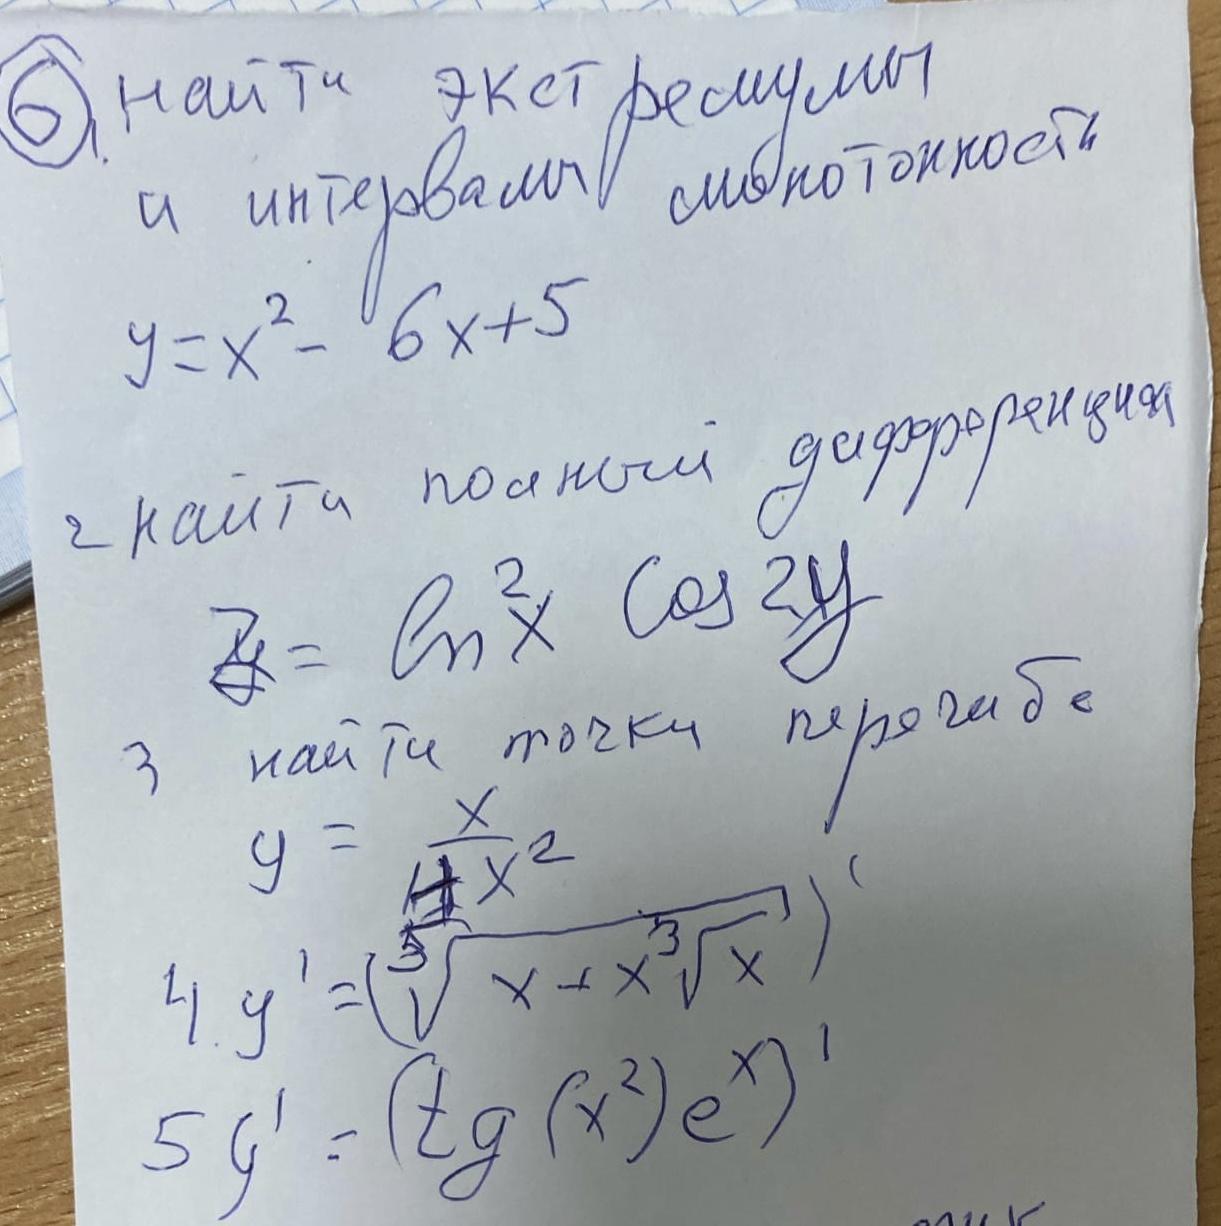 6 1. Найти экстремумы
и интервалы монотонность
y = x² - 6x + 5
2 найти полный дифференциал
z = ln²x cos 2y
3 найти точки перегиба
y = x / (1+x²)
4. y' = (⁵√(x + x ³√x))'
5 y' = (tg(x²)eˣ)'